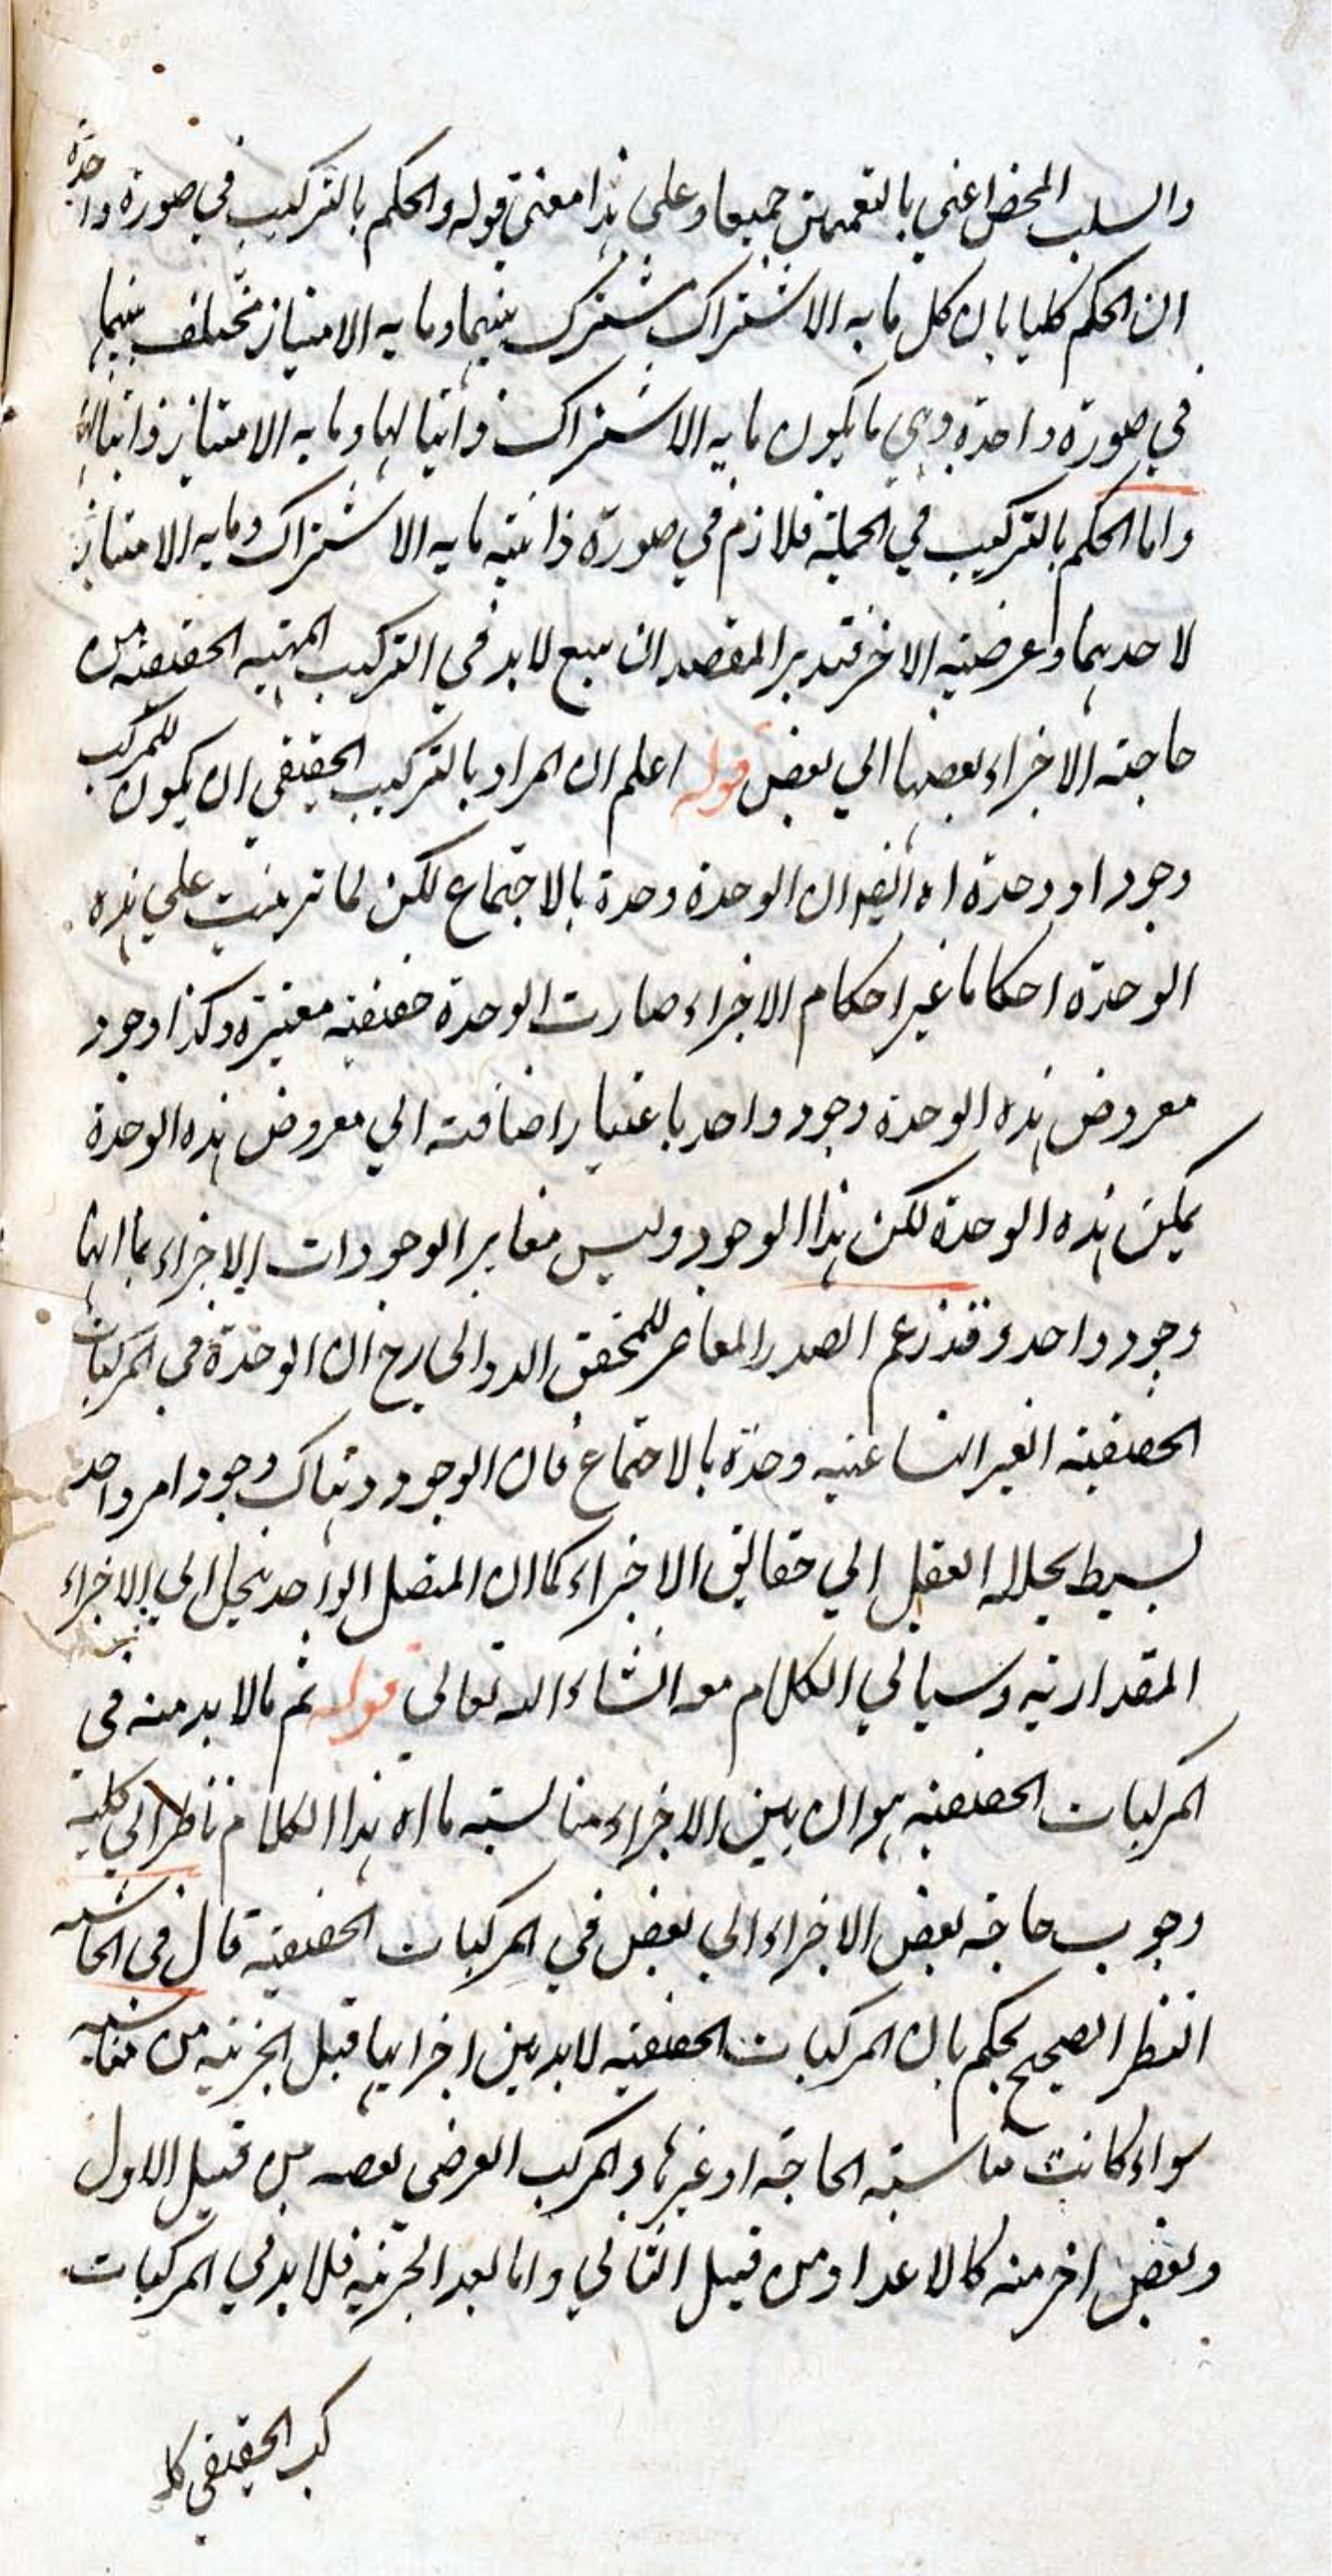 والسلب المحض اعني بالتعميمين جميعا وعلى هذا معنى قوله والحكم بالتركيب في صورة واحدة
ان الحكم كليا بان كل ما به الاشتراك مشترك بينهما وما به الامتياز مختلف بينهما
في صورة واحدة وهي ما يكون ما به الاشتراك ذاتيا لهما وما به الامتياز ذاتيا لهما
واما الحكم بالتركيب في الجملة فلازم في صورة ذاتية ما به الاشتراك وما به الامتياز
لاحدهما وعرضية الاخر فتدبر المقصد ان سبع لابد في التركيب المهية الحقيقية من
حاجته الاجزاء بعضها الي بعض قوله اعلم ان المراد بالتركيب الحقيقي ان يكون للمركب
وجود او وحدة اه ان الوحدة وحدة بالاجتماع لكن لما ترتبت علي هذه
الوحدة احكاما غير احكام الاجزاء صارت الوحدة حقيقية معتبرة وكذا وجود
معروض هذه الوحدة وجود واحد باعتبار اضافته الي معروض هذه الوحدة
هذه الوحدة لكن هذا الوجود وليس مغاير الوجودات الاجزاء بما انها
وجود واحد وقد زعم الصدر المعاصر للمحقق الدواني رح ان الوحدة في المركبات
الحقيقية الغير الصناعية وحدة بالاجتماع فان الوجود هناك وجود امر واحد
بسيط يحلله العقل الي حقائق الاجزاء كما ان المتصل الواحد ينحل الي الاجزاء
المقدارية وسياتي الكلام معه انشاء الله تعالي قوله ثم مالا بد منه في
المركبات الحقيقية هو ان بين الاجزاء مناسبته ما اه هذا الكلام ناظر الي كلية
وجوب حاجة بعض الاجزاء الي بعض في المركبات الحقيقية قال في الحاشية
النظر الصحيح يحكم بان المركبات الحقيقية لابد بين اجزائها قبل الجزئية من مناسبة
سواء كانت مناسبته الحاجة او غيرها والمركب العرضي بعضه من قبيل الاول
وبعض اخر منه كالاعداد من قبيل الثاني واما بعد الجزئية فلا بد في المركبات
كب الحقيقي كا